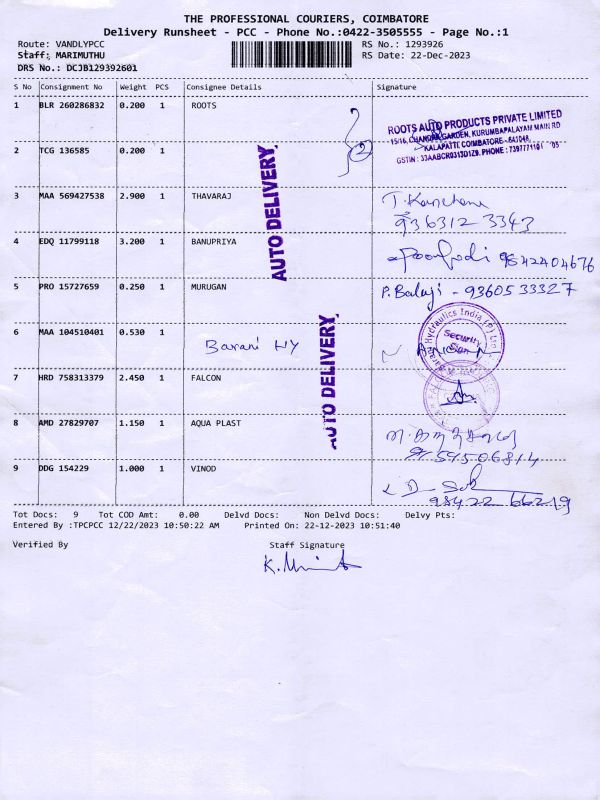 THE PROFESSIONAL COURIERS, COIMBATORE
Delivery Runsheet - PCC - Phone No.:0422-3505555 - Page No.:1
Route: VANDLYPCC
RS No.: 1293926
Staff: MARIMUTHU
RS Date: 22-Dec-2023
DRS No.: DCJB129392601
S No Consignment No Weight PCS Consignee Details Signature
1 BLR 260286832 0.200 1 ROOTS
ROOTS AUTO PRODUCTS PRIVATE LIMITED
15/16, CHANDRA GARDEN, KURUMBAPALAYAM MAIN RD
KALAPATTI, COIMBATORE - 641048.
GSTIN : 33AABCR0313D1Z9. PHONE : 7397771101
2 TCG 136585 0.200 1 2
AUTO DELIVERY
3 MAA 569427538 2.900 1 THAVARAJ T. Kanchana
936312 3343
4 EDQ 11799118 3.200 1 BANUPRIYA 9842404676
5 PRO 15727659 0.250 1 MURUGAN P. Balaji - 9360533327
AUTO DELIVERY
6 MAA 104510401 0.530 1 Barani HY
Hydraulics India (P) Ltd
Security
7 HRD 758313379 2.450 1 FALCON
8 AMD 27829707 1.150 1 AQUA PLAST
9 DDG 154229 1.000 1 VINOD
98422 66219
Tot Docs: 9 Tot COD Amt: 0.00 Delvd Docs: Non Delvd Docs: Delvy Pts:
Entered By :TPCPCC 12/22/2023 10:50:22 AM Printed On: 22-12-2023 10:51:40
Verified By Staff Signature